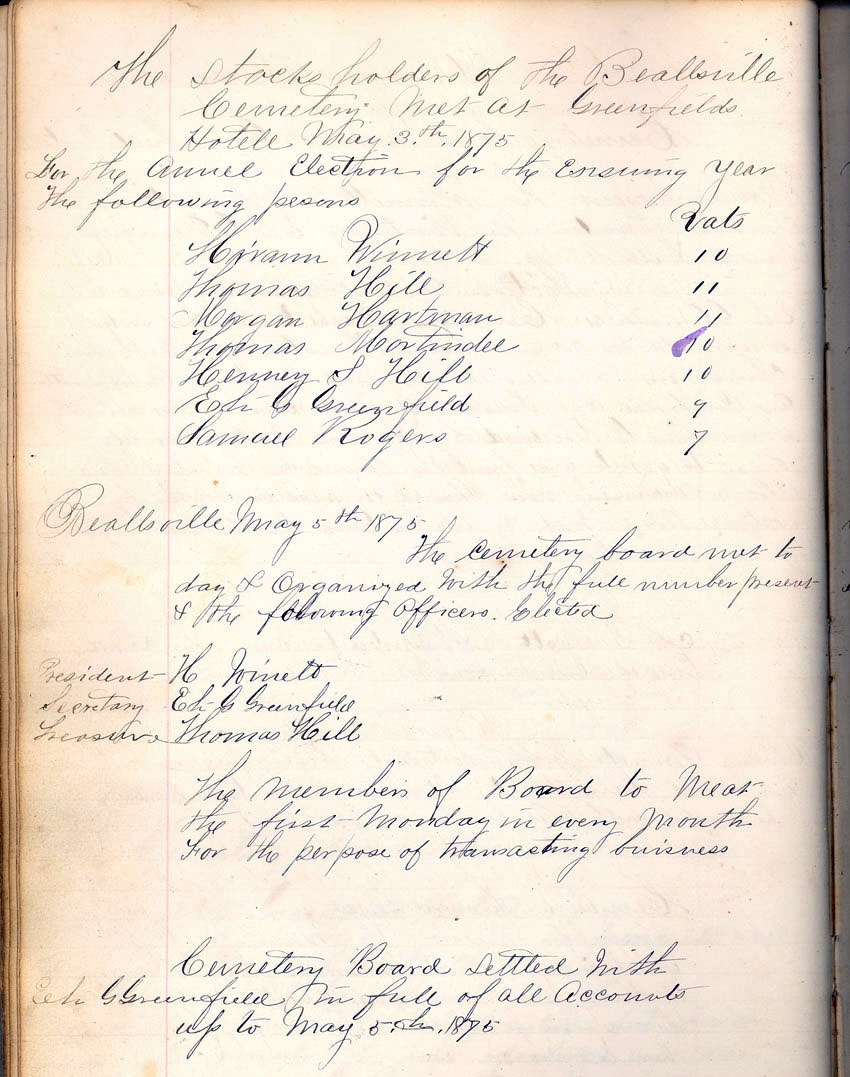 The Stocks holders of the Beallsville
Cemetery Met at Greenfields
Hotele May. 3.th. 1875
For the Annuel Election for the Ensuing Year
The following pesons
Vats
Hirann Winnett 10
Thomas Hill 11
Morgan Hartman 11
Thomas Martindee 10
Henney S Hill 10
Eli G Greenfield 9
Samuel Rogers 7
Beallsville May 5th 1875
The Cemetery board met to
day & Organized With the full number present
& the following Officers. Elected
President H Winett
Secretary Eli G Greenfield
Treasure Thomas Hill
The members of Board to Meat
the first Monday in every Month
For the perpose of transacting buisness
Cemetery Board Settled With
Eli G Greenfield in full of all Accounts
up to May 5.th. 1875